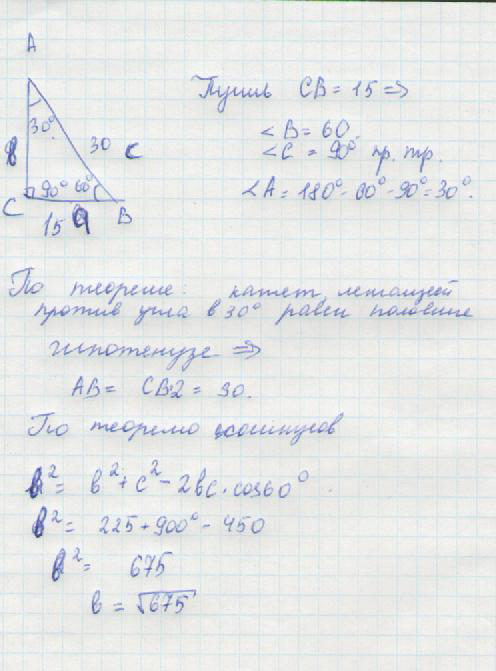 A
Пусть CB = 15 =>
30°
30 c
∠B = 60.
∠C = 90° пр. тр.
в
90° 60°
∠A = 180° - 60° - 90° = 30°.
C
B
15 a
По теореме: катет лежащей
против угла в 30° равен половине
гипотенузе =>
AB = CB·2 = 30.
По теоремо косинусов
в² = в² + c² - 2вc · cos60°
в² = 225 + 900° - 450
в² = 675
в = √675